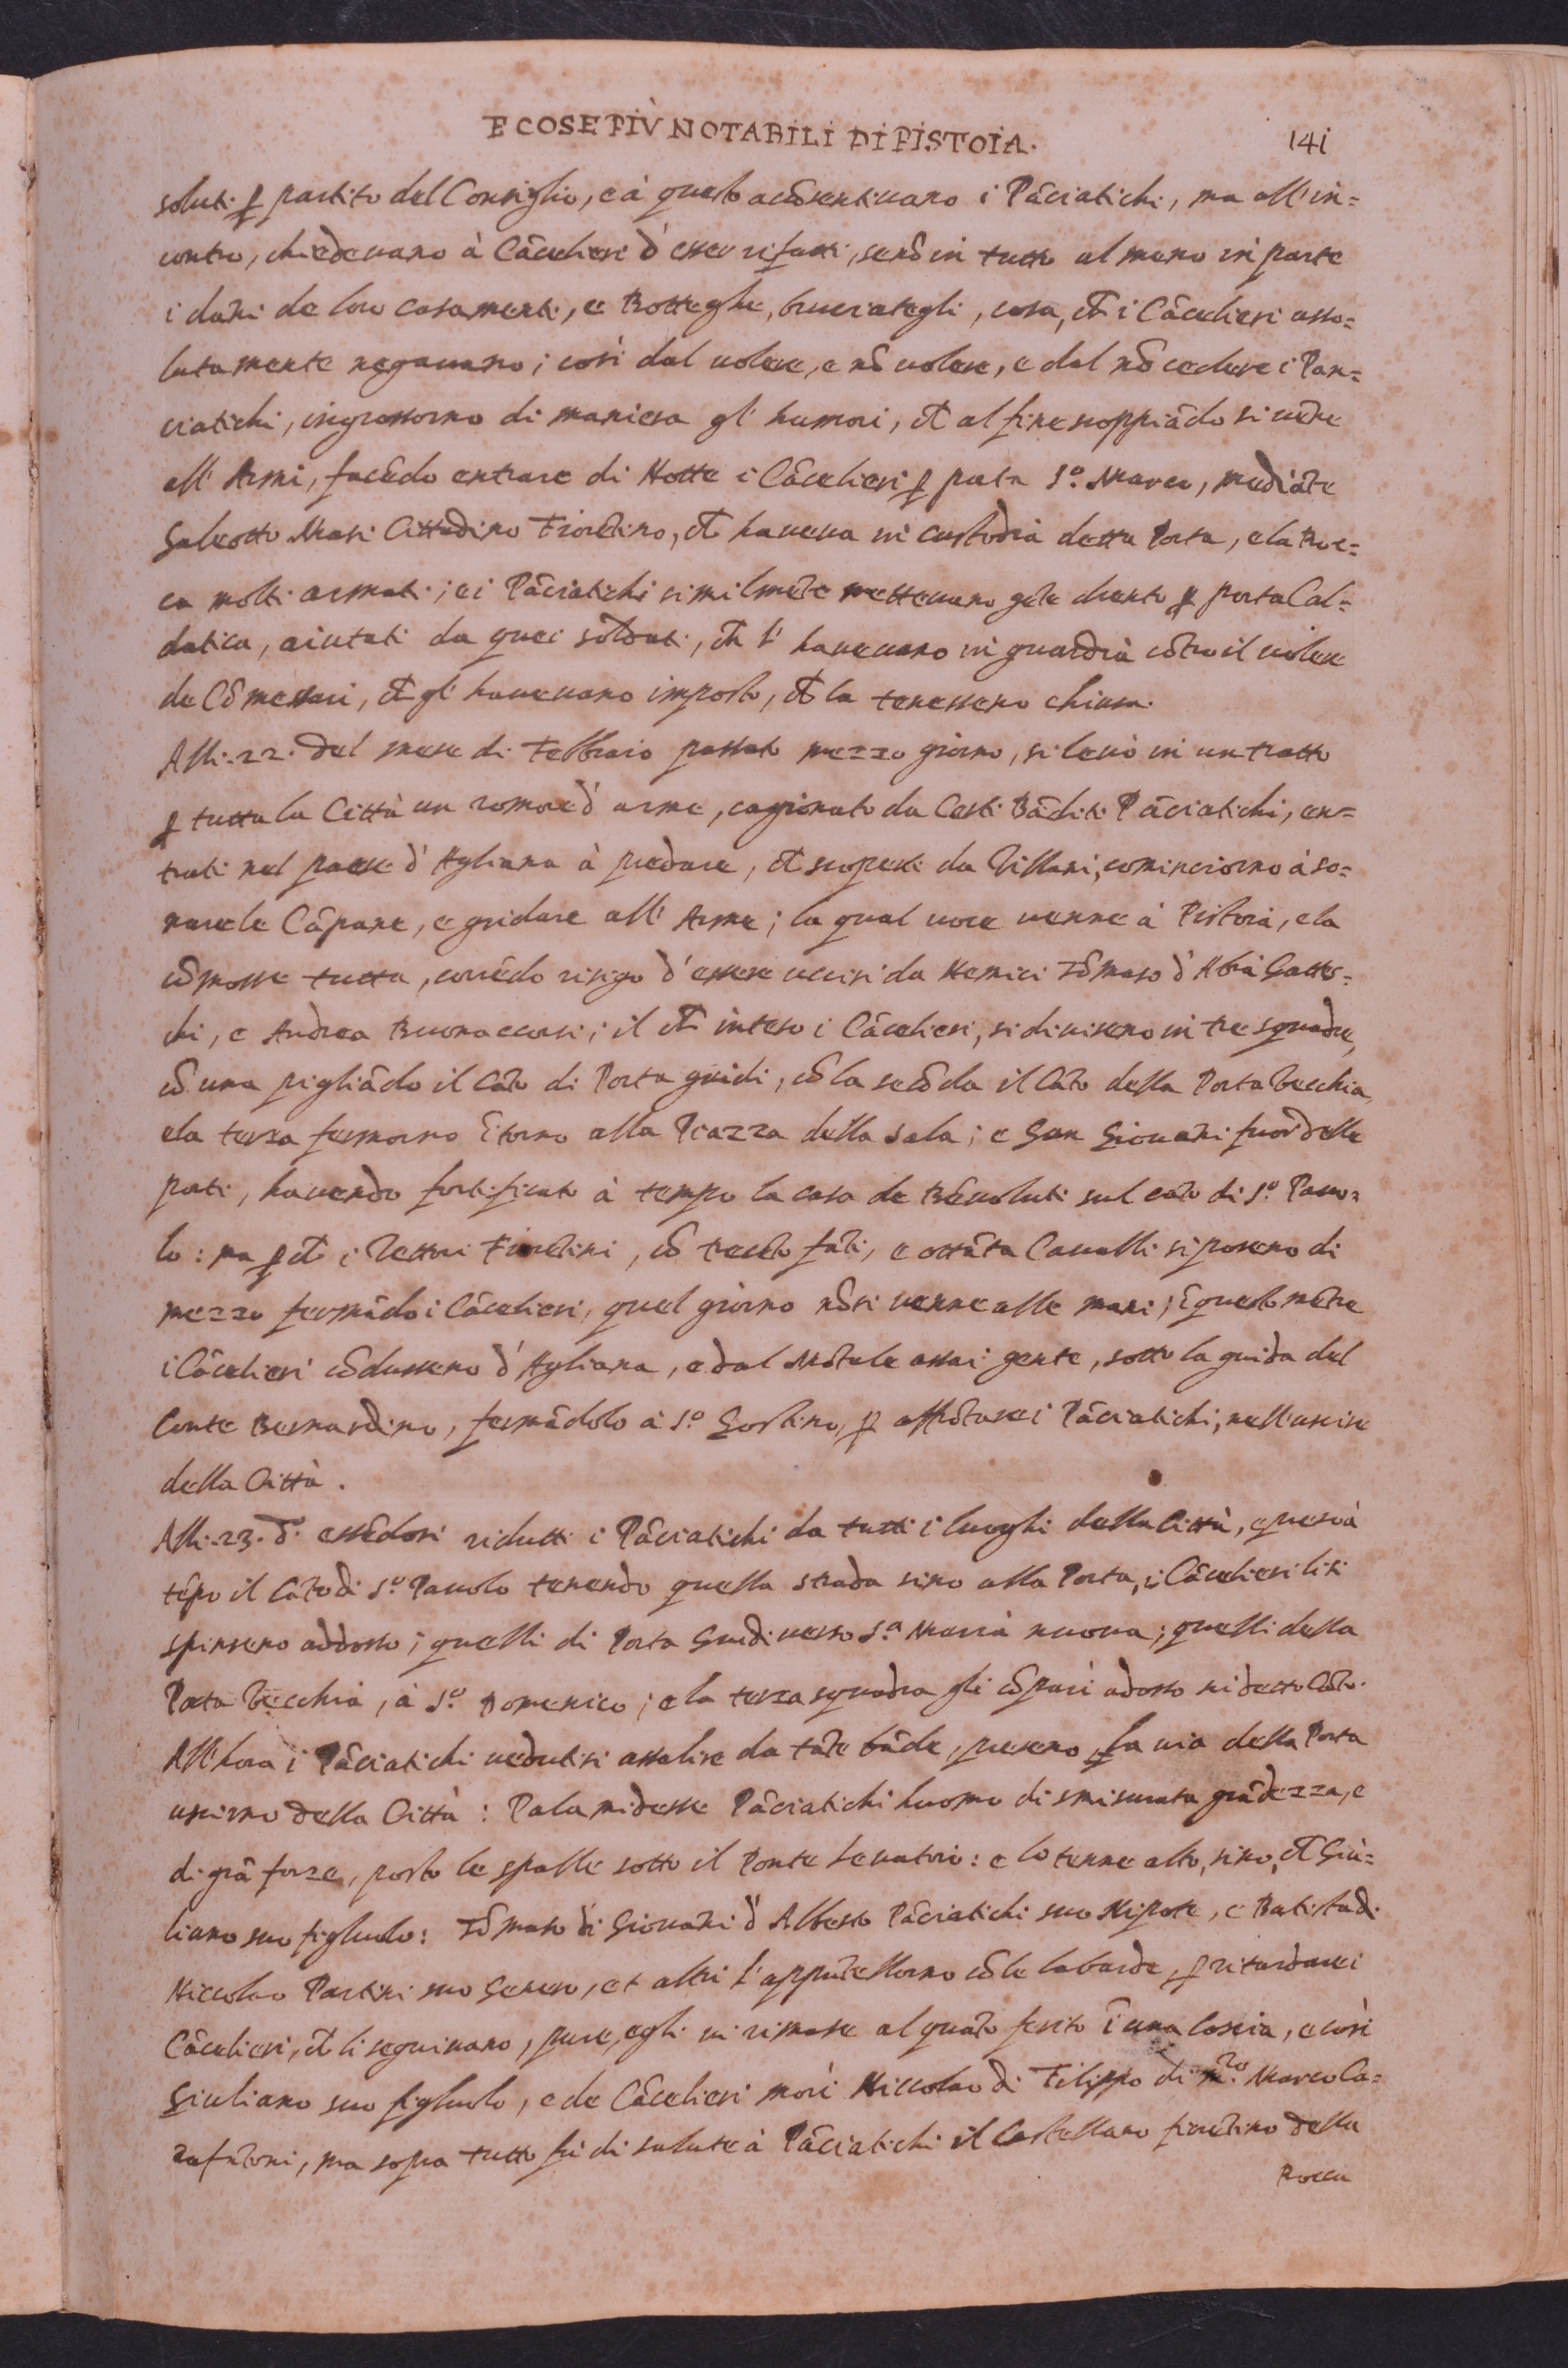 E COSE PIÙ NOTABILI DI PISTOIA. 141
soluti ꝑ partito del Consiglio, e à questo acõsentivano i Pãciatichi, ma all'in=
contro, chiedevano à Cãcelieri d'esser rifatti, senõ in tutto al meno in parte
i dãni de loro casamenti, e Botteghe, bruciategli, cosa, cħ i Cãcelieri asso=
lutamente negavano; così dal volere, e nõ volere, e dal nõ cedere i Pan=
ciatichi, ingrossorno di maniera gl'humori, cħ al fine scoppiãdo si vẽne
all'Armi, facẽdo entrare di Notte i Cãcelieri ꝑ porta S.º Marco, mediãte
Galeotto Masi Cittadino Fiorẽtino, cħ haveva in custodia detta Porta, e la Roc=
ca molti armati; e i Pãciatichi similmẽte mettevano gẽte drento ꝑ porta Cal=
datica, aiutati da quei soldati, cħ l'havevano in guardia cõtro il volere
de Cõmessari, cħ gl'havevano imposto, cħ la tenesseno chiusa.
Alli .22. del mese di Febbraio passato mezzo giorno, si levò in un tratto
ꝑ tutta la Città un romore d'arme, cagionato da Certi Bãditi Pãciatichi, en=
trati nel paese d'Agliana à predare, cħ scoperti da Villani, cominciorno à so=
nare le Cãpane, e gridare all'Arme; la qual voce venne à Pistoia, e la
cõmosse tutta, corrẽdo risigo d'essere uccisi da Nemici Tõmaso d'Abrà Gattes=
chi, e Andrea Buonaccorsi; il cħ inteso i Cãcelieri, si diviseno in tre squadre,
cõ una pigliãdo il Cãto di Porta guidi, cõ la secõda il Cãto della Porta Vecchia,
e la terza fermorno ĩtorno alla Piazza della Sala; e San Giovãni fuor delle
porti, havendo fortificato à tempo la casa de Bẽvoluti sul cãto di S.º Pavo=
lo: ma ꝑ cħ i Rettori Fiorẽtini, cõ trecẽto fãti, e ottãta Cavalli si poseno di
mezzo fermãdo i Cãcelieri, quel giorno nõ si venne alle mani; ĩ questo mẽtre
i Cãcelieri cõdusseno d'Agliana, e dal Mõtale assai gente, sotto la guida del
Conte Bernardino, fermãdolo à S.º Gostino, ꝑ affrõtare i Pãciatichi, nell'uscire
della Città.
Alli .23. d. essẽdosi ridutti i Pãciatichi da tutti i luoghi della Città, e presò à
tẽpo il Cãto di S.º Pavolo tenendo quella strada sino alla Porta, i Cãcelieri li si
spinseno addosso; quelli di Porta Guidi verso S.ª Maria nuova; quelli della
Porta Vecchia, à S.º Domenico; e la terza squadra gli cõparì adosso nel detto Cãto.
All'hora i Pãciatichi vedutisi assalire da tãte bãde, preseno, ꝑ la via della Porta
uscirno della Città: Palamidesse Pãciatichi huomo di smisurata grãdezza, e
di grã forze, posto le spalle sotto il Ponte Levatoio: e lo tenne alto, sino, cħ Giu=
liano suo figliuolo: Tõmaso di Giovãni d'Alberto Pãciatichi suo Nipote, e Batista di
Niccolao Partini suo Genero, et altri l'appũtellorno cõ le labarde, ꝑ ritardare i
Cãcelieri, cħ li seguivano, pure, egli vi rimase alquãto ferito ĩ una Coscia, e così
Giuliano suo figliuolo, e de Cãcelieri morì Niccolao di Filippo di m.ro Marco Ca=
rafãtoni, ma sopra tutto fu di salute à Pãciatichi il Castellano fiorẽtino della
Rocca